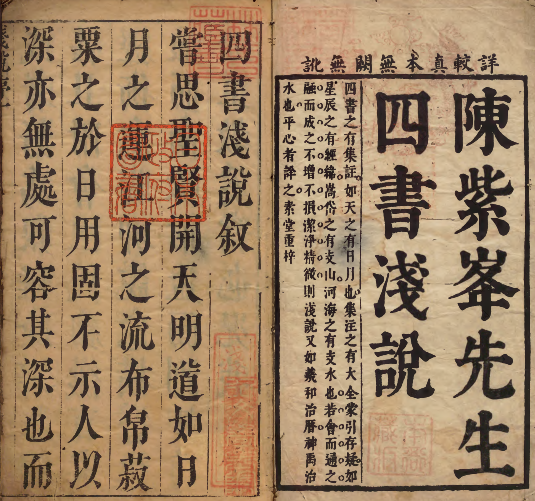 詳較真本無闕無訛
陳紫峯先生
四書淺說
四書之有集註如天之有日月也集註之有大全蒙引存疑如
星辰之有經緯嵩岱之有支山河海之有支水也若會而通之
融而成之不增不損潔淨精微則淺說又如羲和治曆神禹治
水也平心者譯之素堂重梓
四書淺說叙
嘗思聖賢開天明道如日
月之運江河之流布帛菽
粟之於日用固不示人以
深亦無處可容其深也而